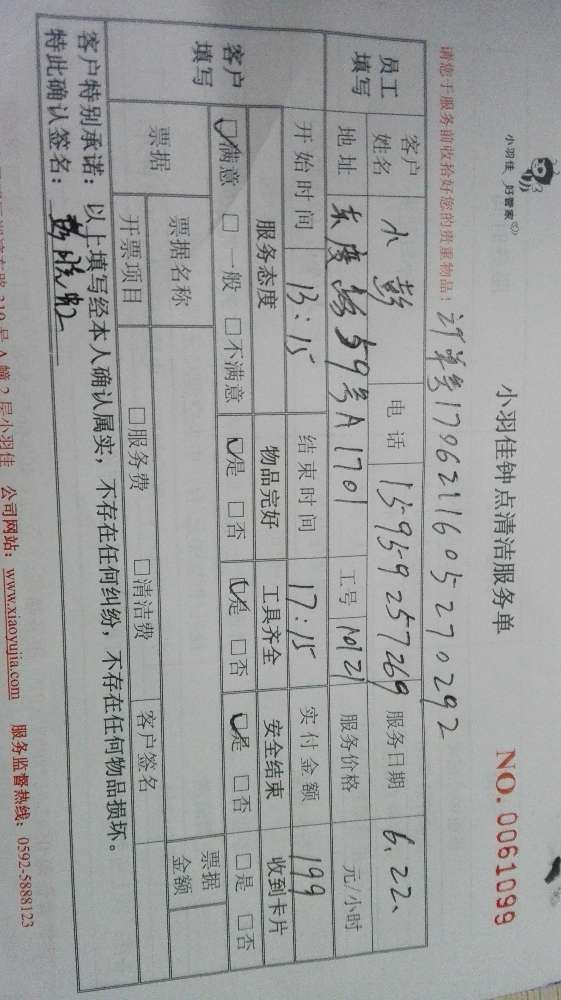 小羽佳 好管家
小羽佳钟点清洁服务单
NO. 0061099
请您于服务前收拾好您的贵重物品！ 订单号1796211605270292
员工填写 客户姓名 小彭 电话 15959257269 服务日期 6.22.
地址 东度路59号A1701 工号 N121 服务价格 元/小时
开始时间 13:15 结束时间 17:15 实付金额 199
客户填写 服务态度 物品完好 工具齐全 安全结束 收到卡片
☑满意 □一般 □不满意 ☑是 □否 ☑是 □否 ☑是 □否 □是 □否
票据 票据名称 票据金额
开票项目 □服务费 □清洁费 客户签名
客户特别承诺：以上填写经本人确认属实，不存在任何纠纷，不存在任何物品损坏。
特此确认签名：
310号A幢2层小羽佳 公司网站：www.xiaoyujia.com 服务监督热线：0592-5888123